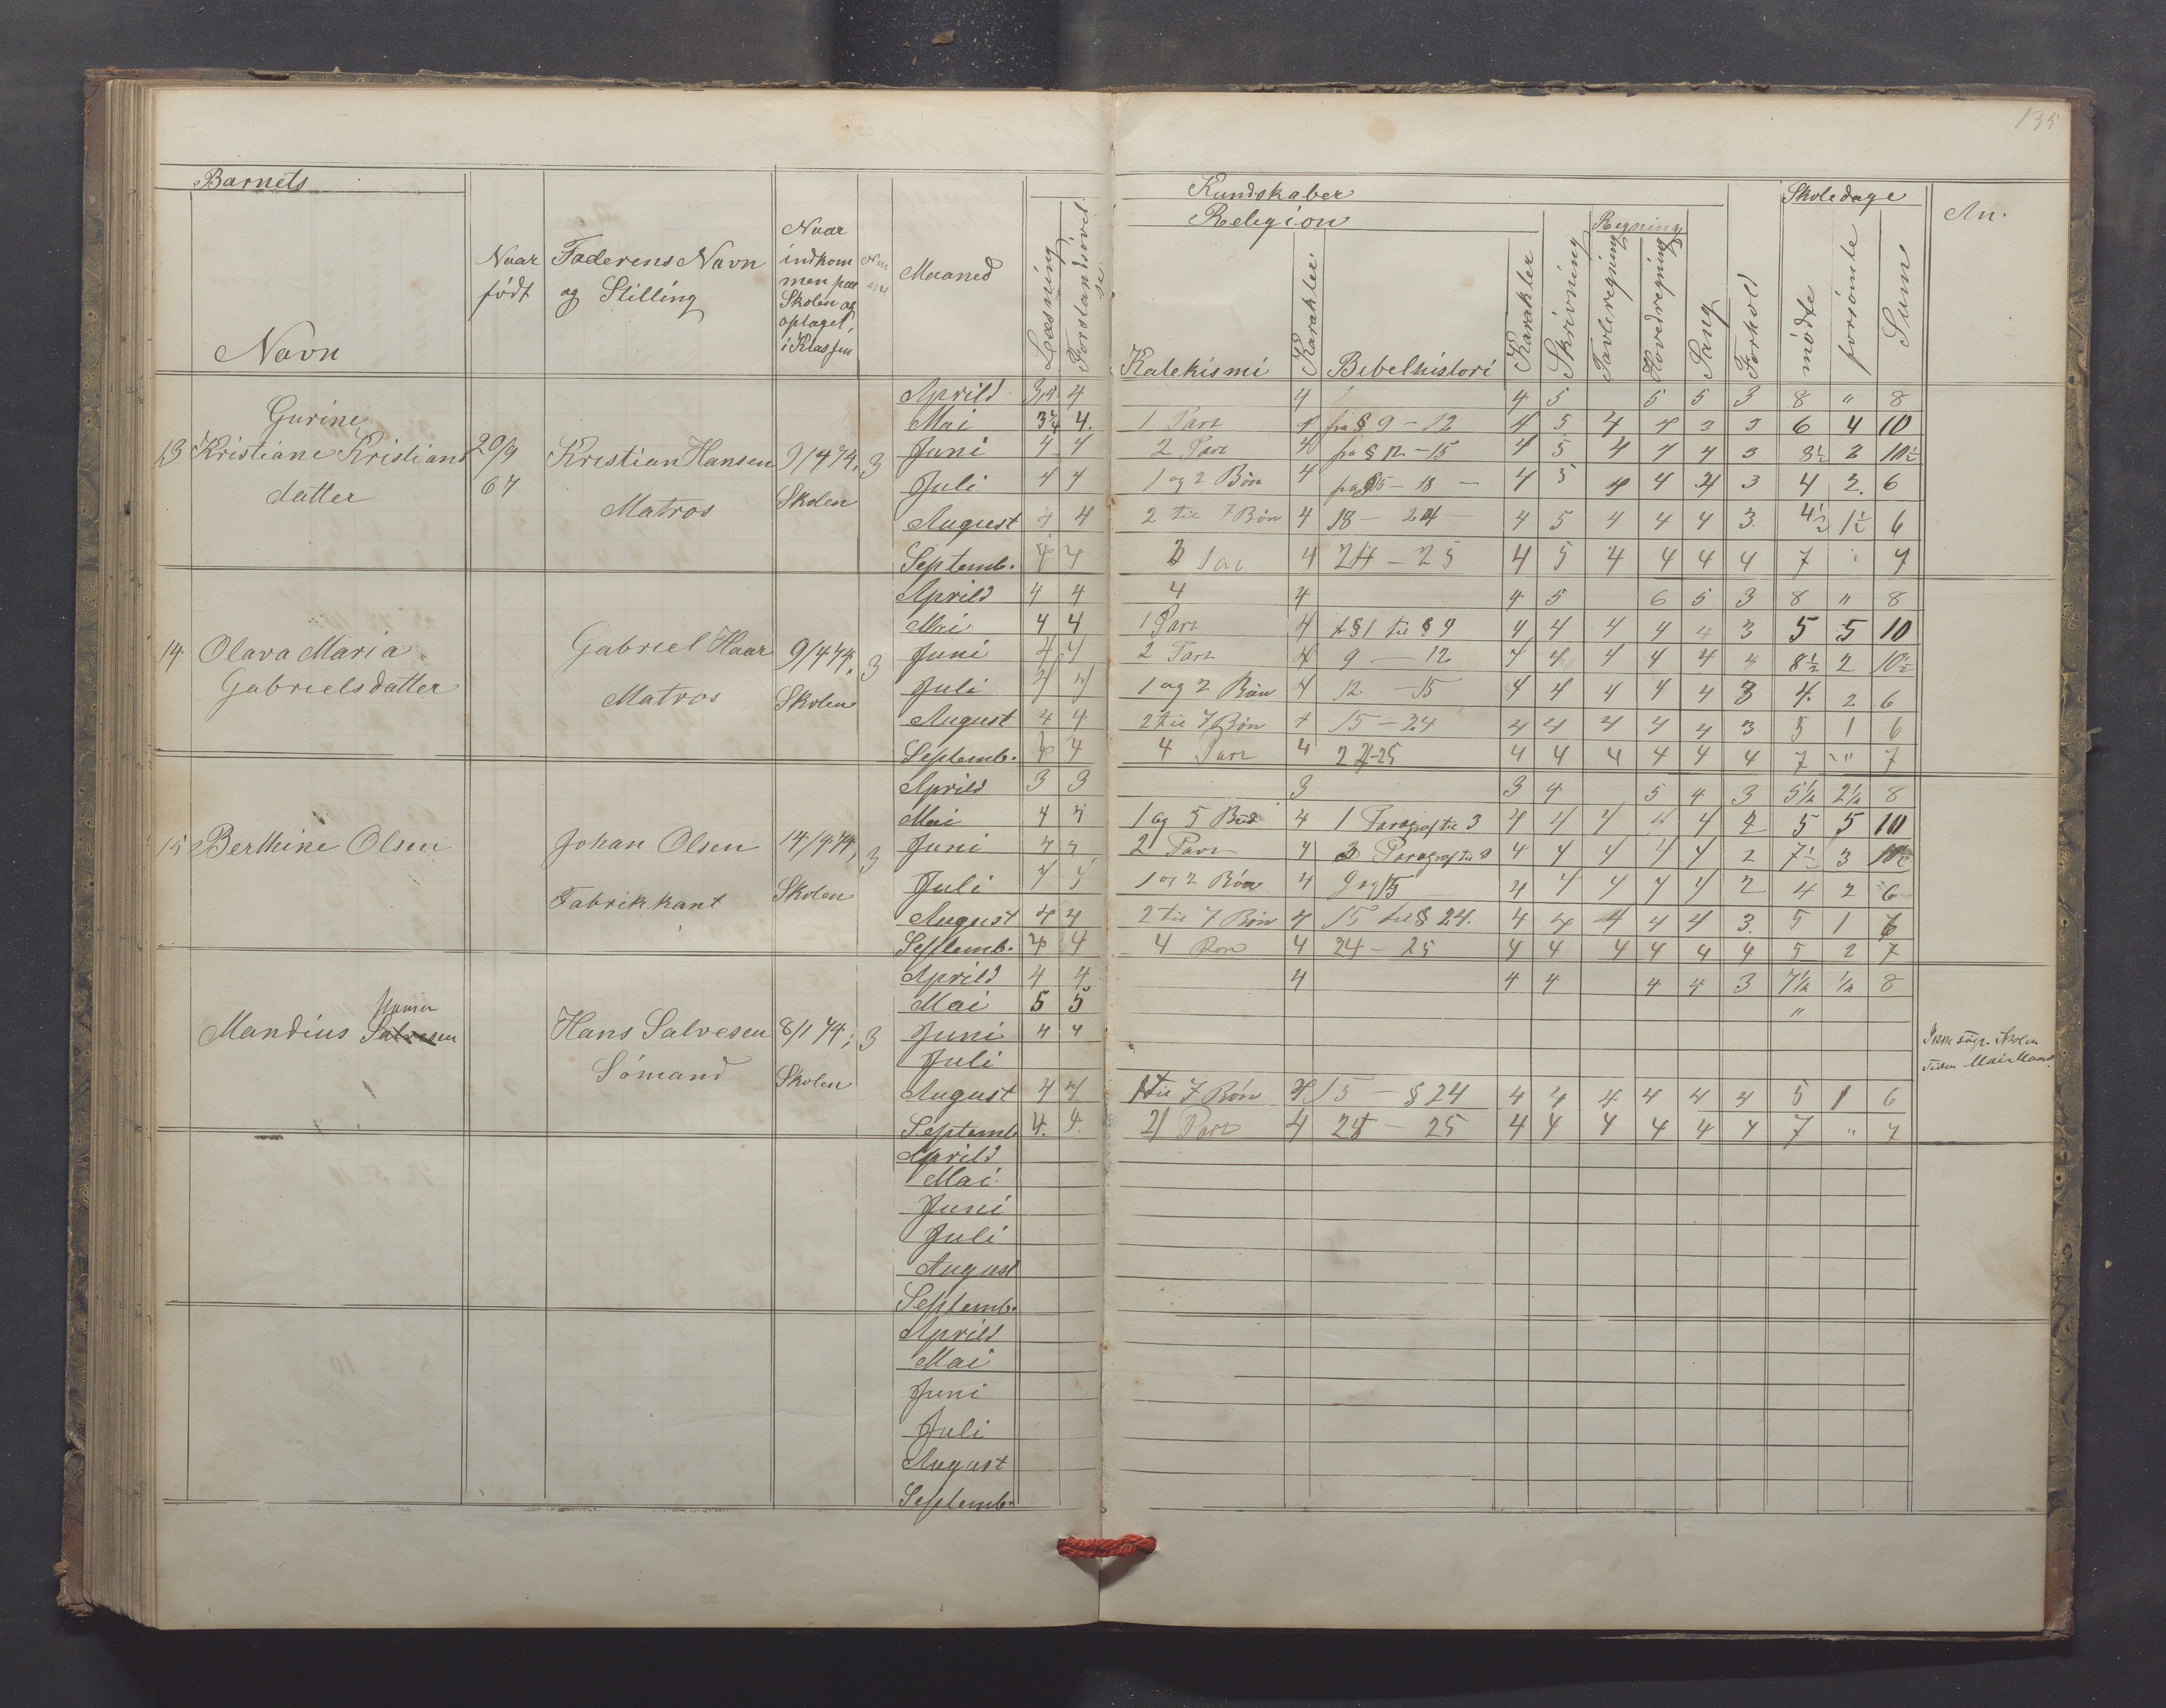 135
Barnets
Navn
Naar født
Faderens Navn og Stilling
Naar indkommen paa Skolen og optaget i Klassen
Maaned
Læsning
Forstandsövelse
Kundskaber
Religion
Katekismi
Karakter
Bibelhistori
Karakter
Skrivning
Regning
Tavleregning
Hovedregning
Sang
Forhold
Skoledage
mödte
forsömte
Sum
An.
13 Gurine Kristiane Kristiansdatter 20/9 64 Kristian Hansen Matros 9/4 74, Skolen 3
Aprild 4 4 4 5 5 5 3 8 " 8
Mai 3 3/4 4. 1 Part 4 fra § 9 - 12 4 5 4 4 3 3 6 4 10
Juni 4 4 2 Part 4 fra § 12 - 15 4 5 4 4 4 3 8½ 2 10½
Juli 4 4 1 og 2 Bön 4 fra §15 - 18 - 4 5 4 4 4 3 4 2. 6
August 4 4 2 til 7 Bön 4 18 - 24 - 4 5 4 4 4 3 4½ 1½ 6
Septemb. 4 4 4 24 - 25 4 5 4 4 4 4 7 " 7
14 Olava Maria Gabrielsdatter Gabriel Haar Matros 9/4 74, Skolen 3
Aprild 4 4 4 4 4 5 6 5 3 8 " 8
Mai 4 4 1 Part 4 § 1 til § 9 4 4 4 4 4 3 5 5 10
Juni 4 4 2 Part 4 9 - 12 4 4 4 4 4 4 8½ 2 10½
Juli 4 4 1 og 2 Bön 4 12 - 15 4 4 4 4 4 3 4. 2 6
August 4 4 2 til 7 Bön 4 15 - 24 4 4 4 4 4 3 5 1 6
Septemb. 4 4 4 Part 4 24-25 4 4 4 4 4 4 7 " 7
15 Berthine Olsen Johan Olsen Fabrikkant 14/4 74, Skolen 3
Aprild 3 3 3 3 4 5 4 3 5½ 2½ 8
Mai 4 4 1 og 5 Bud 4 1 Paragraf til 3 4 4 4 4 4 2 5 5 10
Juni 4 4 2 Part 4 3 Paragraf til 9 4 4 4 4 4 2 7½ 3 10½
Juli 4 4 1 og 2 Bön 4 9 og 15 4 4 4 4 4 2 4 2 6
August 4 4 2 til 7 Bön 4 15 til § 24. 4 4 4 4 4 3. 5 1 6
Septemb. 4 4 4 Bön 4 24 - 25 4 4 4 4 4 4 5 2 7
Mandius Salvesen Hans Salvesen Sömand 8/1 74; Skolen 3
Aprild 4 4 4 4 4 4 4 3 7½ ½ 8
Mai 5 5 "
Juni 4 4
Juli
August 4 4 1 til 7 Bön 4 15 - § 24 4 4 4 4 4 4 5 1 6
Septemb 4. 4. Part 4 24 - 25 4 4 4 4 4 4 7 " 7
Skolen
siden Mai Maaned
Aprild
Mai
Juni
Juli
August
Septemb.
Aprild
Mai
Juni
Juli
August
Septemb.